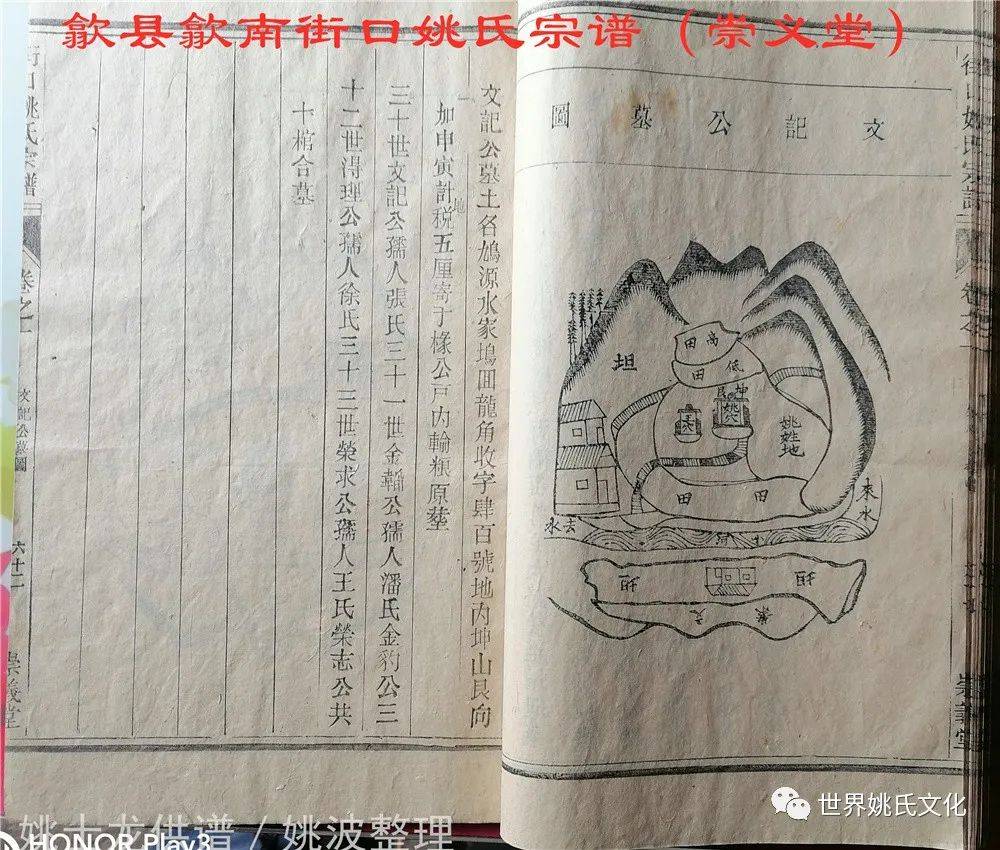 歙县歙南街口姚氏宗谱（崇义堂）
街口姚氏宗譜
文記公墓圖
田
高
田
低
坦
坤
艮
姚穴
姚姓地
田
田
來水
去水
坦
坦
文記公墓土名鳩源水家塢囬龍角收字肆百號地內坤山艮向
加申寅計税五厘寄于椽公戸內輪粮原塟
地
三十世文記公孺人張氏三十一世金韜公孺人潘氏金豹公三
十二世淂理公孺人徐氏三十三世榮求公孺人王氏榮志公共
十棺合墓
街口姚氏宗譜
卷之一
文記公墓圖
六十二
崇義堂
崇義堂
世界姚氏文化
姚大龙供谱 / 姚波整理
HONOR Play3